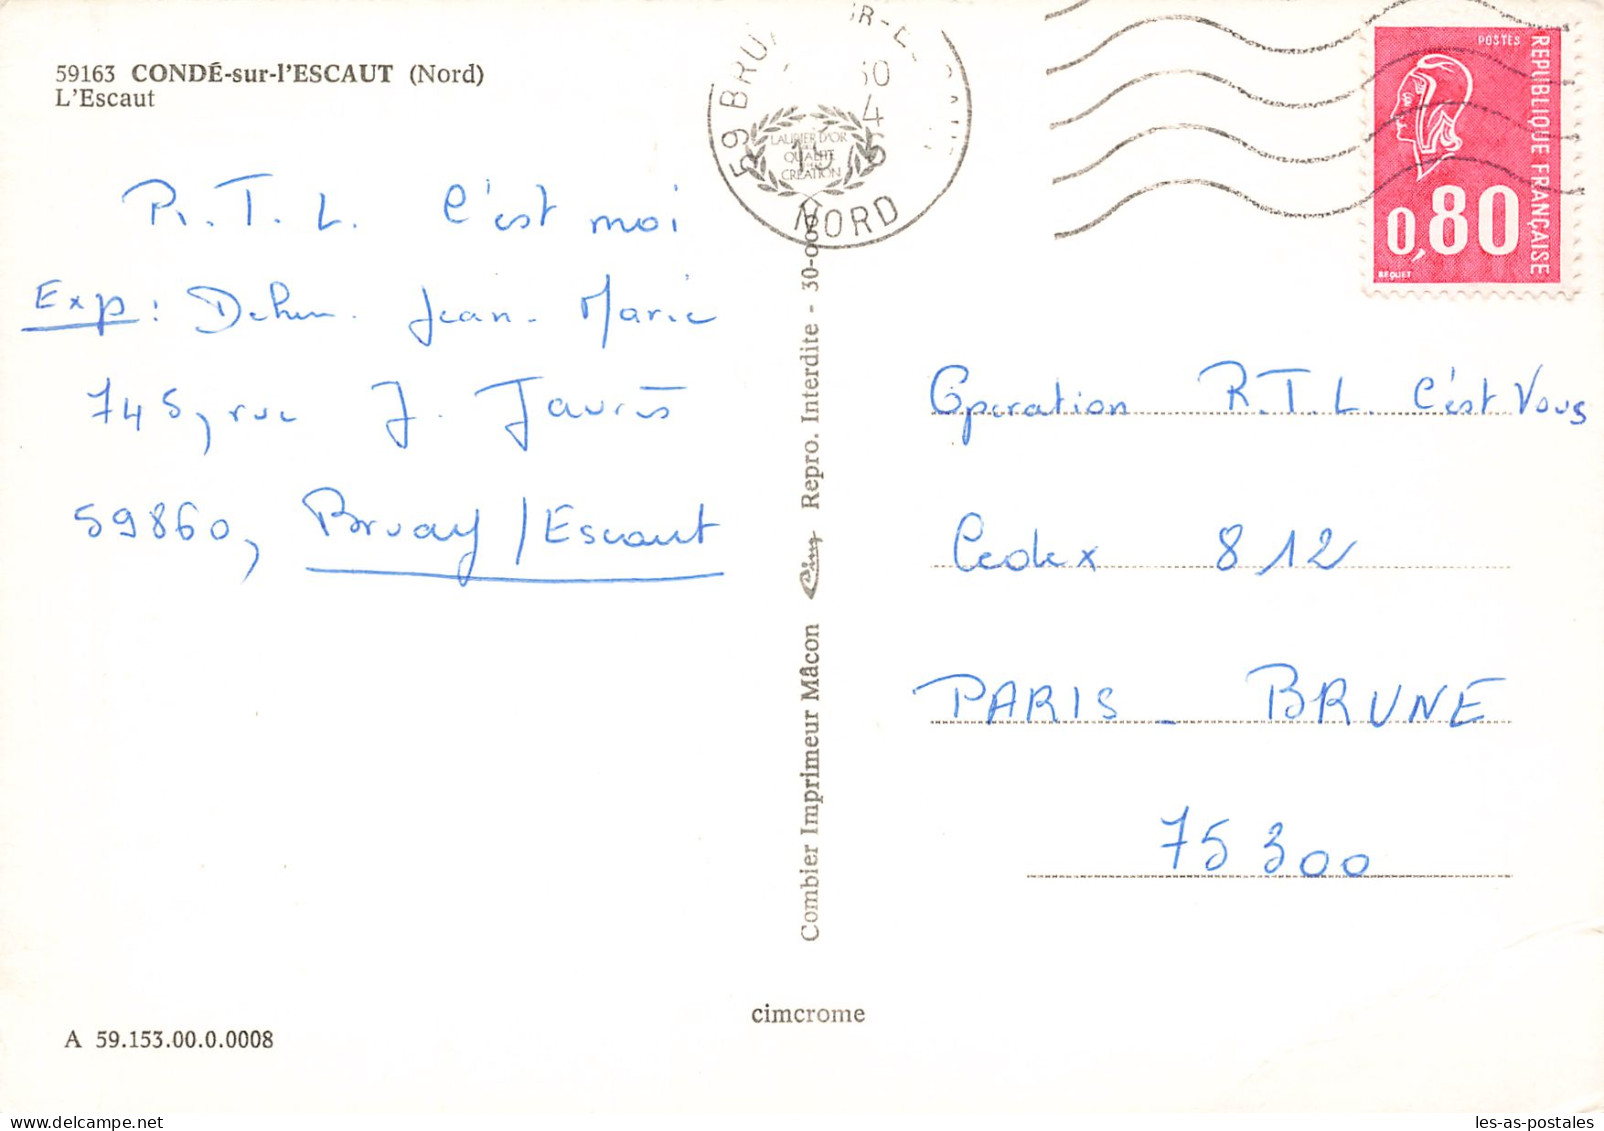 59163 CONDÉ-sur-l'ESCAUT (Nord)
L'Escaut
R.T.L. C'est moi
Exp: Jean-Marie
745, rue J. Jaurès
59860, Bruay/Escaut
A 59.153.00.0.0008
59 BRU
NORD
LAURIER D'OR
QUALITÉ
CRÉATION
Combier Imprimeur Mâcon Cim Repro. Interdite - 30-00
cimcrome
POSTES
REPUBLIQUE FRANÇAISE
0,80
BEQUET
Operation R.T.L. C'est Vous
Cedex 812
PARIS - BRUNE
75300
les-as-postales